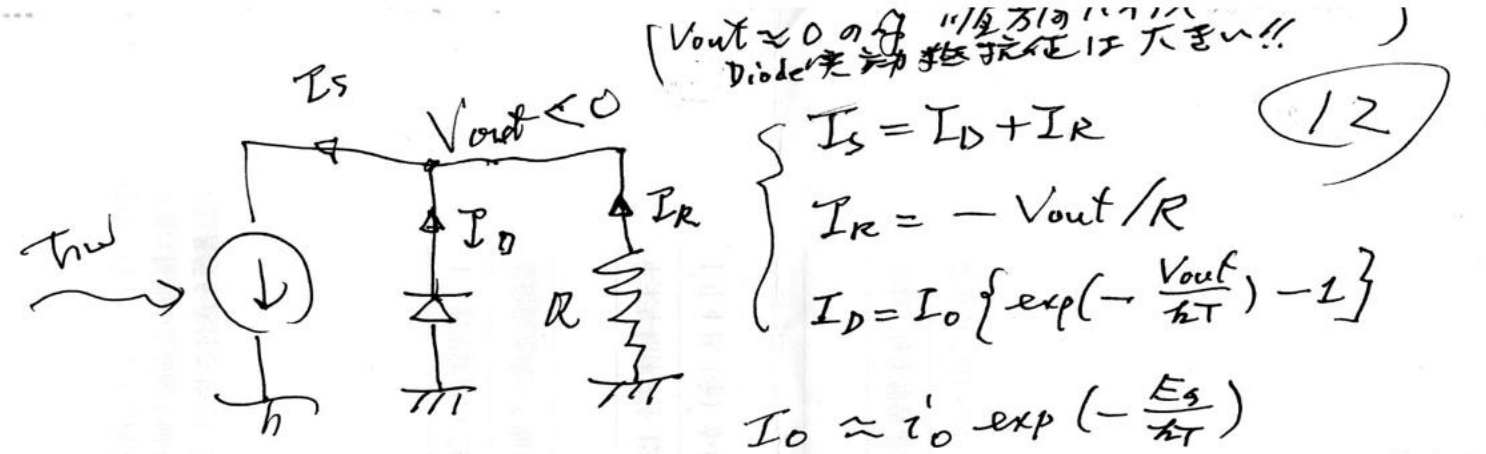 (Vout ≈ 0 の
Diode 抵抗は 大きい!! )
12
Is
Vout < 0
Is = ID + IR
ħω
ID
IR
R
IR = − Vout/R
ID = I0 { exp(− Vout/kT) − 1 }
I0 ≈ i0 exp (− Eg/kT)